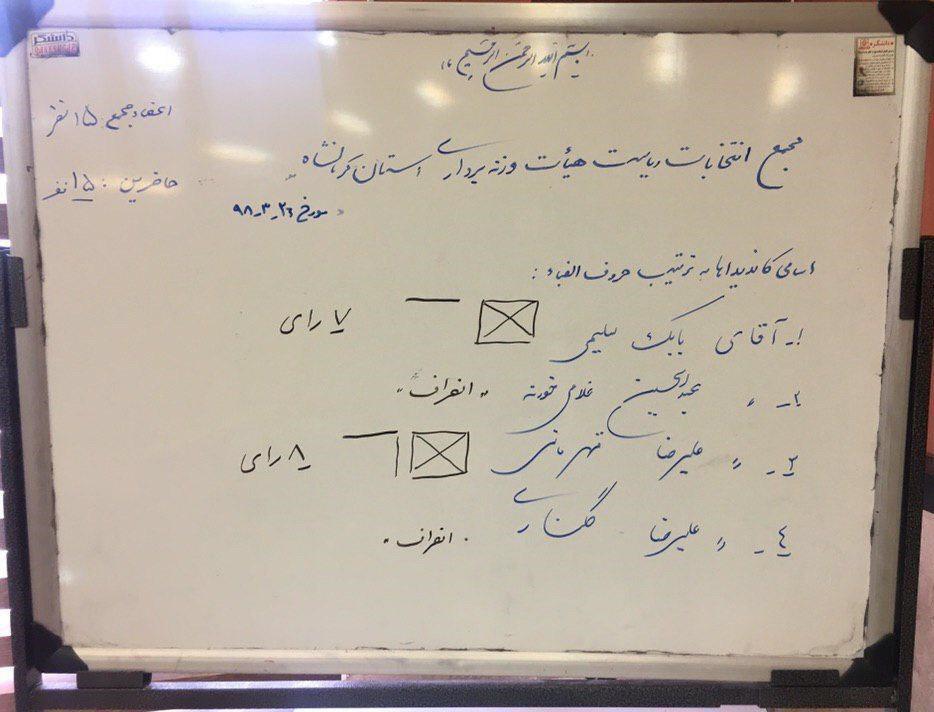 بسم الله الرحمن الرحیم
اعضاء مجمع ۱۵ نفر
حاضرین : ۱۵ نفر
مجمع انتخابات ریاست هیأت وزنه برداری استان کرمانشاه
مورخ ۲۶-۳-۹۸
اسامی کاندیداها به ترتیب حروف الفباء :
۱- آقای بابک سلیمی ۷ رای
۲-〃 عبدالحسین غلامی "انصراف"
۳- 〃 علیرضا قهرمانی ۸ رای
٤- 〃 علیرضا گلناری "انصراف"
دانشگر